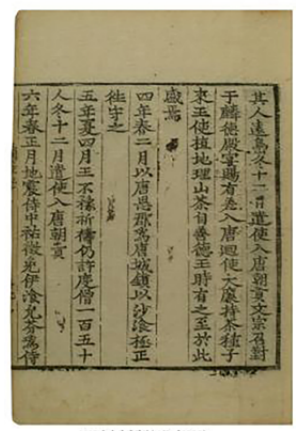 其人遠島冬十二月遣使入唐朝貢文宗召對
于麟德殿宴賜有差入唐廻使大廉持茶種子
來王使植地理山茶自善德王時有之至於此
盛焉
四年春二月以唐恩郡爲唐城鎭以沙湌極正
徃守之
五年夏四月王不豫祈禱仍許度僧一百五十
人冬十二月遣使入唐朝貢
六年春正月地震侍中祐徵免伊湌允芬爲侍